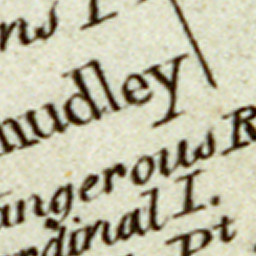 ns I
nudley
angerous R
rdinal I.
Pt